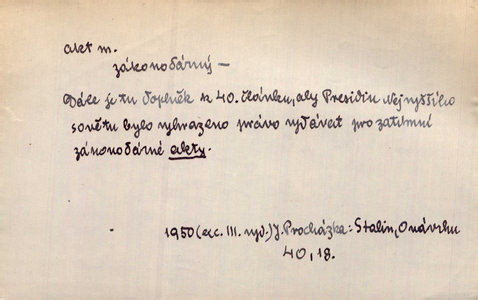 akt m.
zákonodárný –
Dále je tu doplněk k 40. článku, aby Presidiu Nejvyššího
sovětu bylo vyhrazeno právo vydávat prozatimní
zákonodárné akty.
1950 (exc. III. vyd.) J. Procházka: Stalin, O návrhu
40, 18.